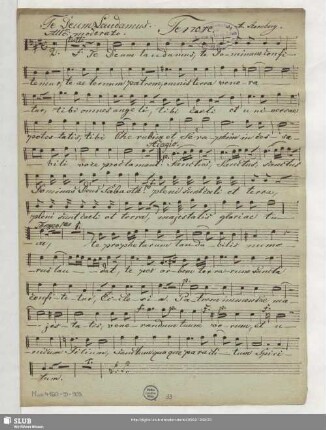 Te Deum Laudamus. Tenore.
All.º moderato.
Te Deum laudamus, te Dominum confi
temur, te aeternum patrem, omnis terra venera
tur, tibi omnes angeli, tibi caeli et universae
potestates, tibi Cherubim et Seraphim incessa
Adagio
bili voce proclamant Sanctus, Sanctus, Sanctus
Dominus Deus Sabaoth. pleni sunt caeli et terra,
pleni sunt caeli et terra, majestatis gloriae tu
ae, te prophetarum laudabilis nume
rus laudat, te per orbem terrarum sancta
confitetur, Ecclesia Patrem immensae ma
jestatis, venerandum tuum verum, et u
nicum Filium, Sanctum quoque paraclitum Spiri
tum.
SLUB